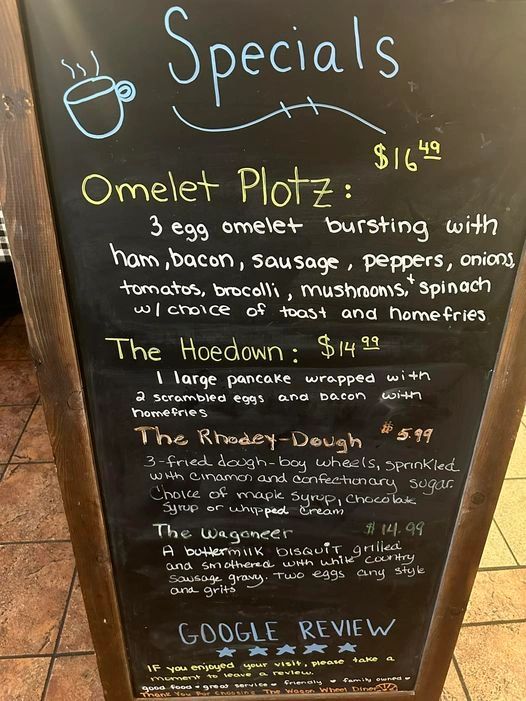 Specials
$16 49
Omelet Plotz:
3 egg omelet bursting with
ham, bacon, sausage, peppers, onions,
tomatos, brocolli, mushrooms, + spinach
w/ choice of toast and homefries
The Hoedown: $14 99
1 large pancake wrapped with
2 scrambled eggs and bacon with
homefries
The Rhodey-Dough $5.99
3-fried dough-boy wheels, sprinkled
with cinamon and confectionary sugar.
Choice of maple syrup, chocolate
syrup or whipped cream
The Wagoneer $14.99
A buttermilk BISQUIT grilled
and smothered with white country
sausage gravy. Two eggs any style
and grits
GOOGLE REVIEW
IF you enjoyed your visit, please take a
moment to leave a review.
good food • great service • friendly • family owned •
Thank You For Choosing The Wagon Wheel Diner